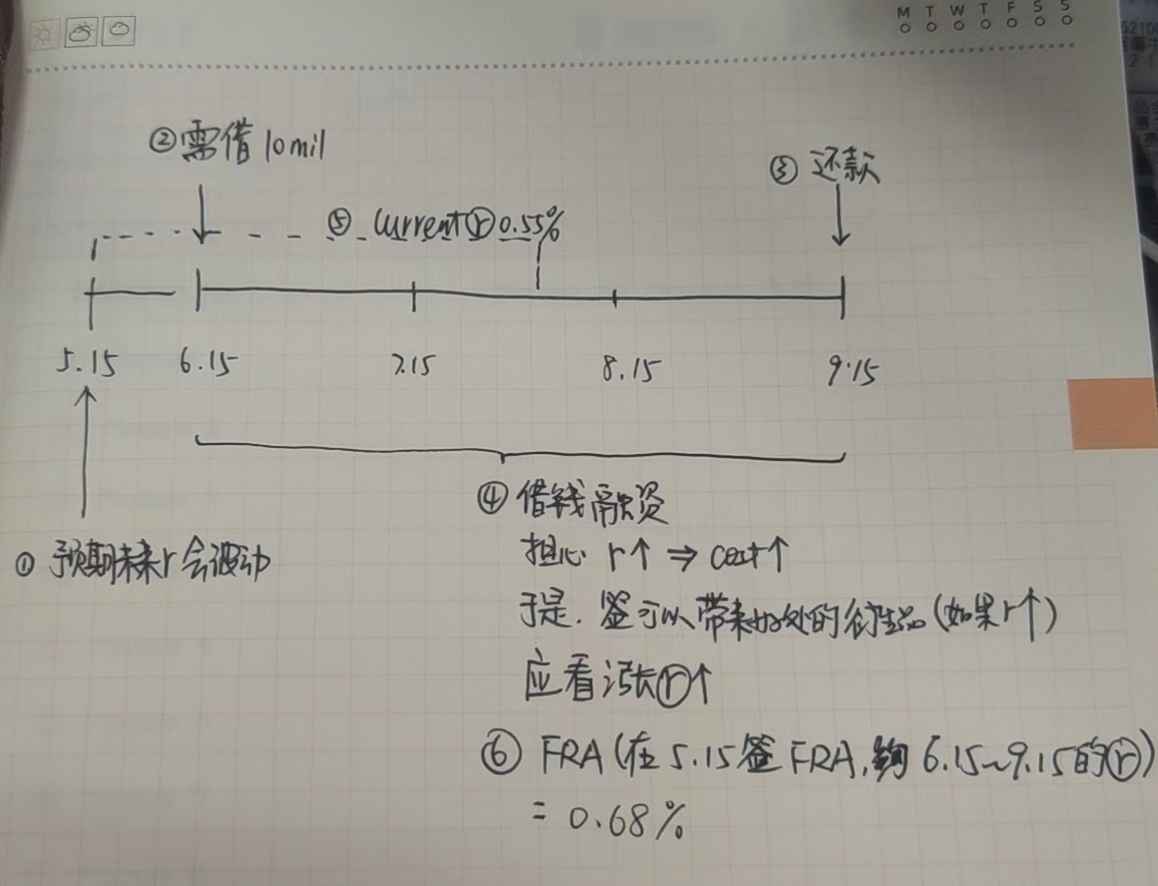 M T W T F S S
② 需借 10 mil
③ 还款
⑤ Current ⓡ 0.55%
5.15 6.15 7.15 8.15 9.15
① 预期未来r会波动
④ 借钱融资
担心 r↑ ⇒ cost↑
于是. 签可以带来好处的衍生品(如果r↑)
应看涨ⓡ↑
⑥ FRA(在5.15签FRA,约6.15~9.15的ⓡ)
= 0.68%